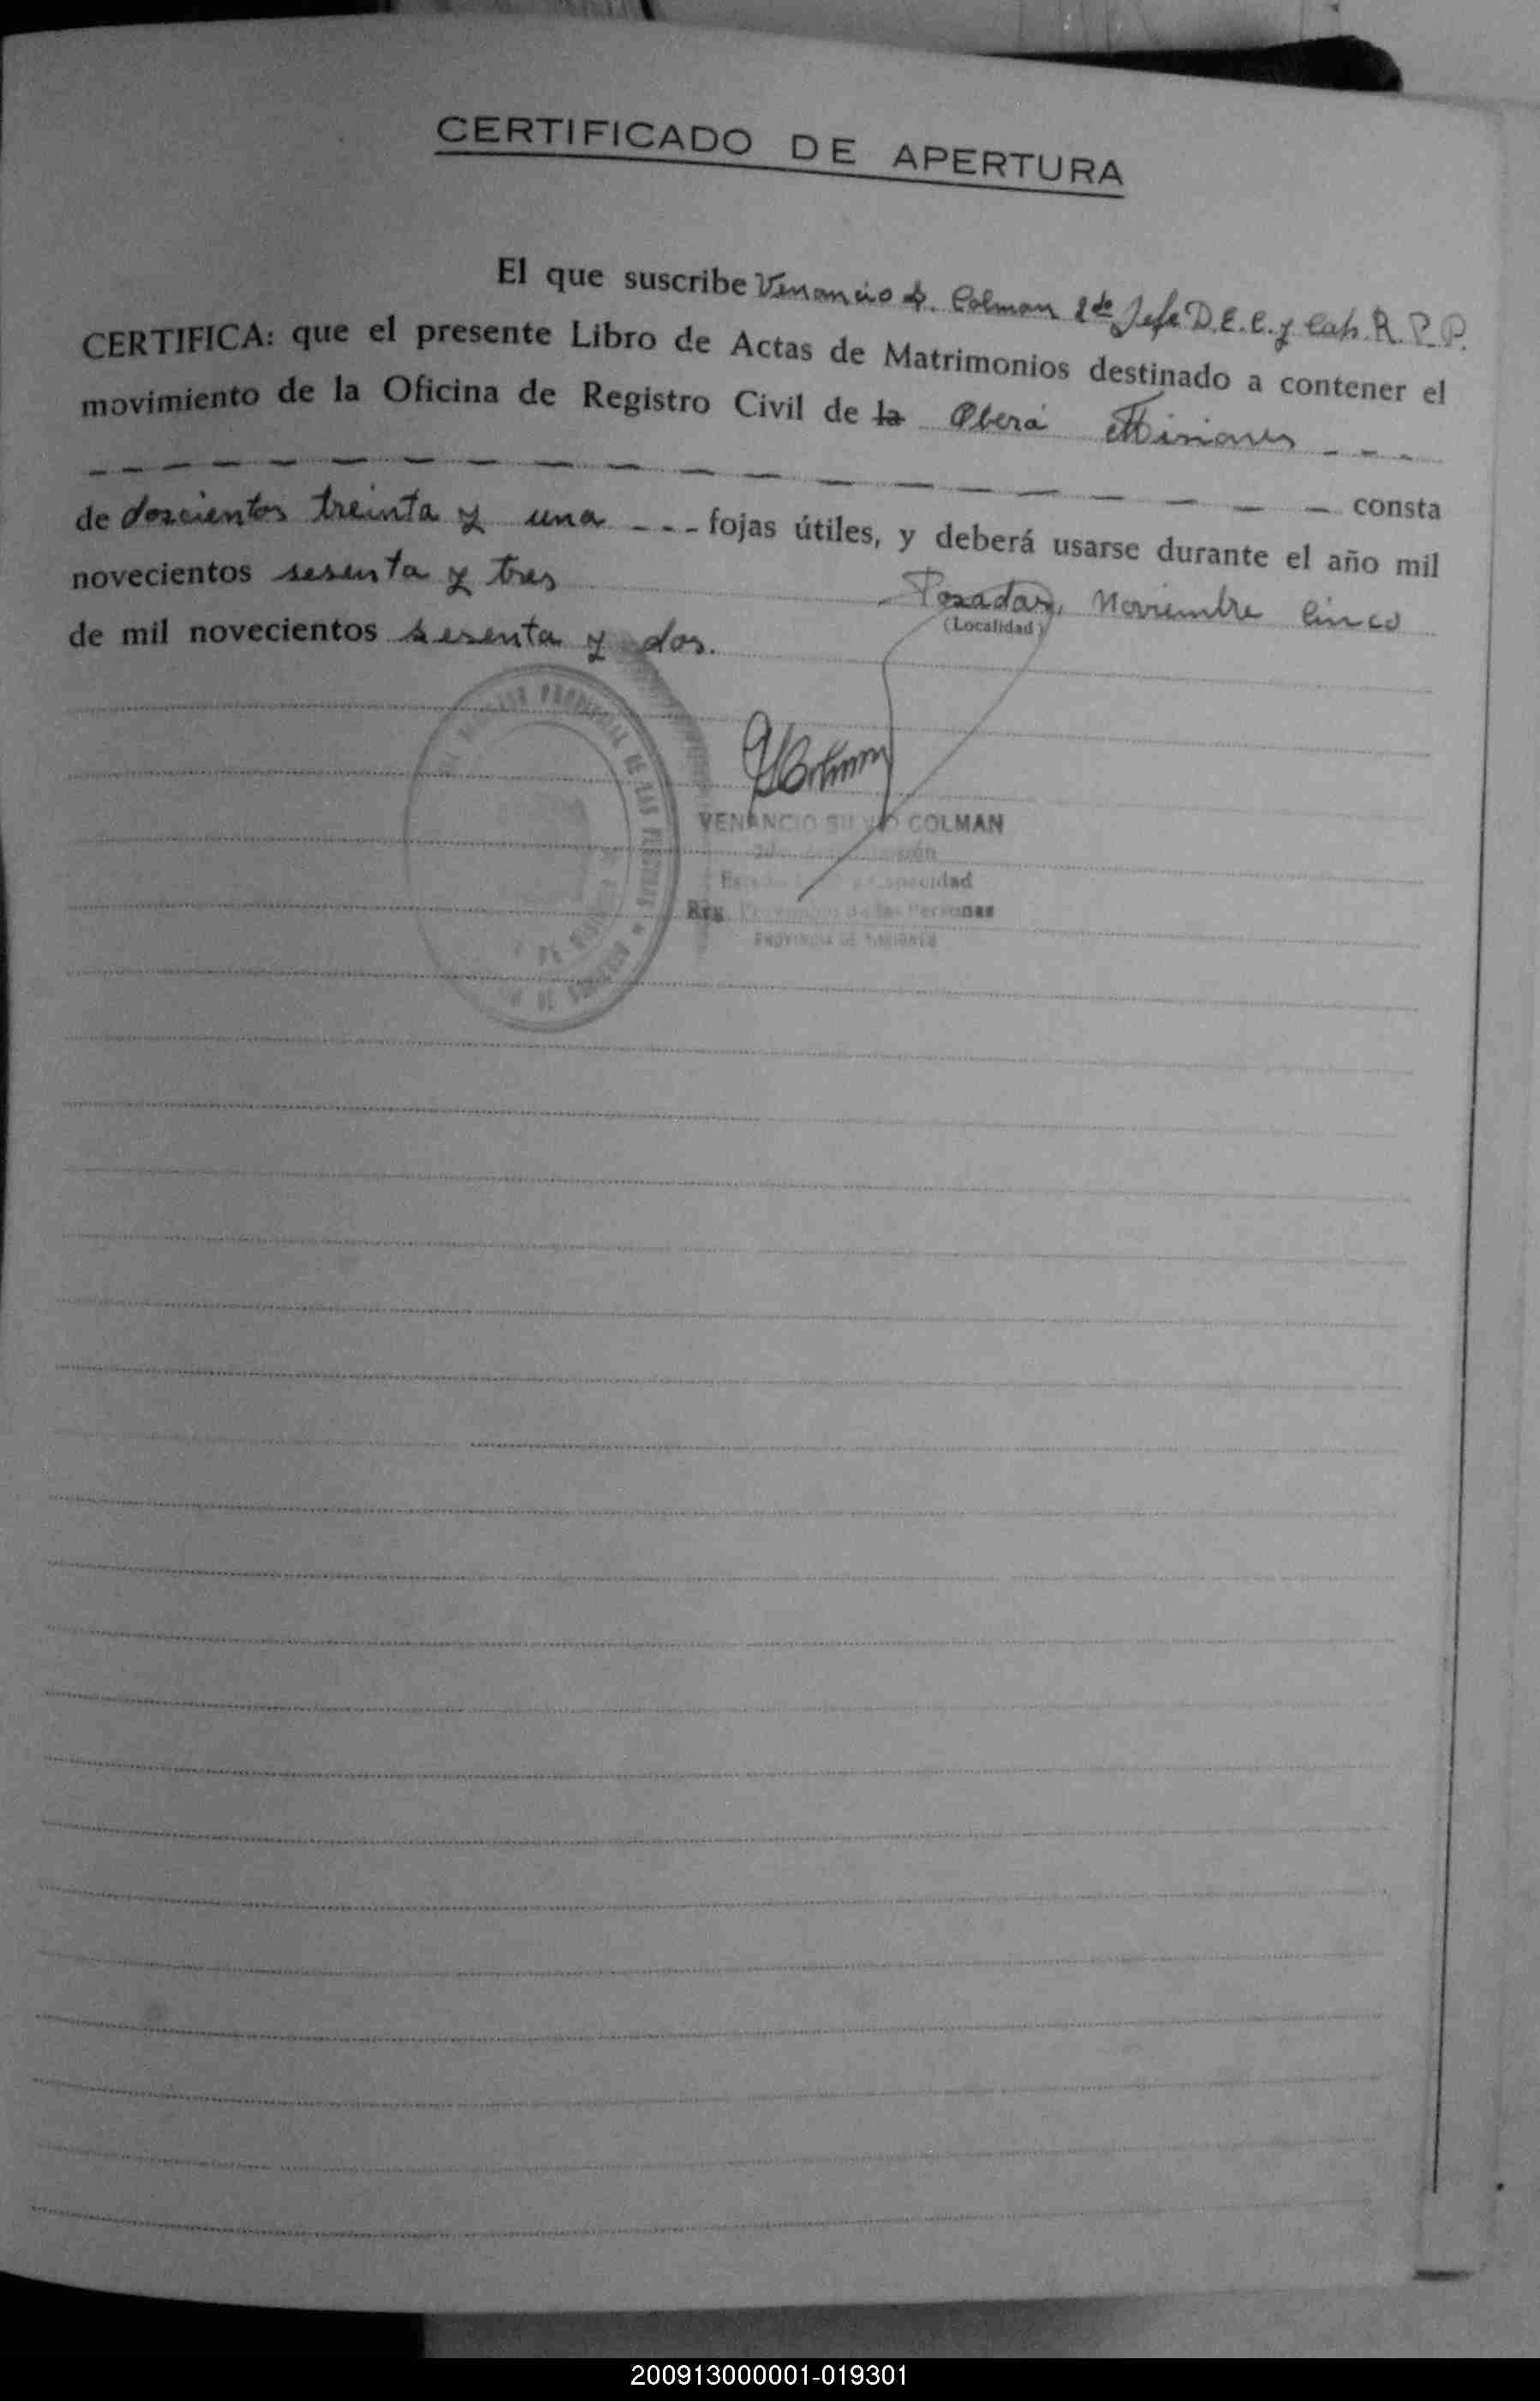 CERTIFICADO DE APERTURA
El que suscribe Venancio S. Colman 2do Jefe D.E.C. y Cap. R.P.P.
CERTIFICA: que el presente Libro de Actas de Matrimonios destinado a contener el
movimiento de la Oficina de Registro Civil de la Oberá Misiones - - -
— — — — — — — — — — — — — — — — — consta
de doscientos treinta y una - - - fojas útiles, y deberá usarse durante el año mil
novecientos sesenta y tres Posadas, Noviembre cinco
(Localidad)
de mil novecientos sesenta y dos.
VColman
PROVINCIAL DE LAS PERSONAS
VENANCIO SILVIO COLMAN
Capacidad
Reg. Provincial de las Personas
PROVINCIA DE MISIONES
200913000001-019301